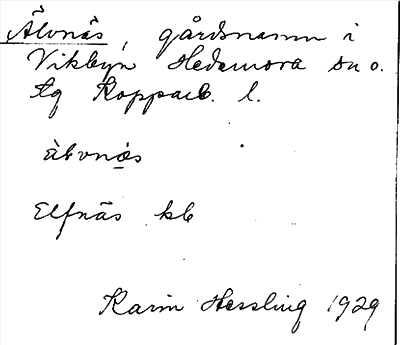 Älvnäs, gårdsnamn i
Vikbyn Hedemora sn o.
tg Kopparb. l.
älvnäs
Elfnäs kb
Karin Hessling 1929